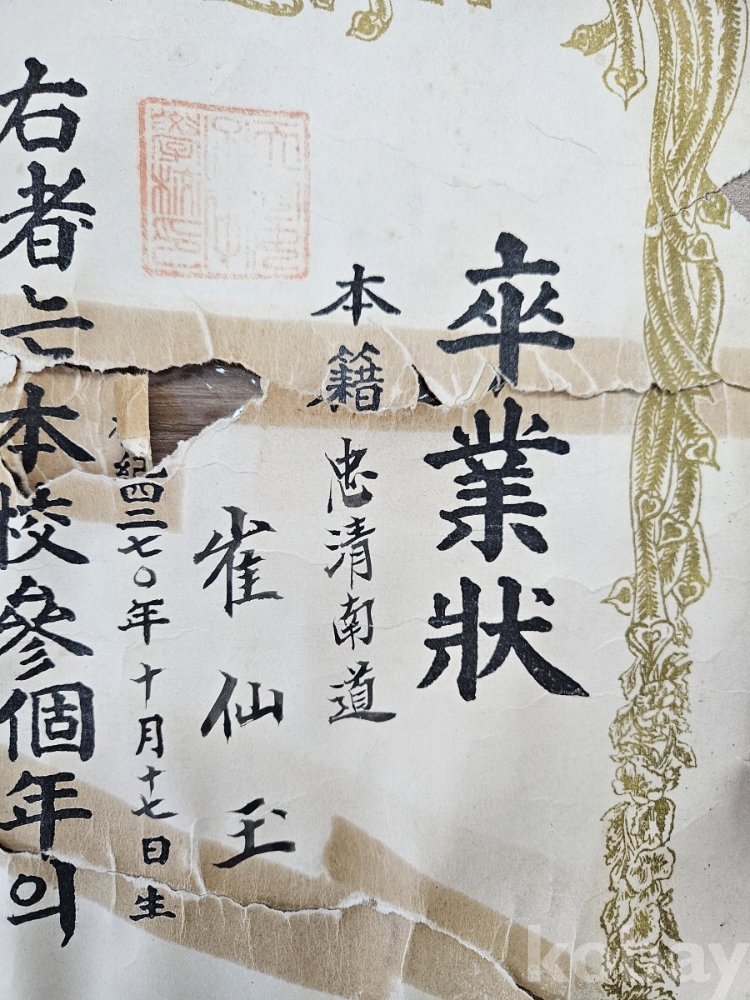 卒業狀
本籍 忠清南道
崔仙玉
紀四二七〇年十月十七日生
右者는本校參個年의
kobay